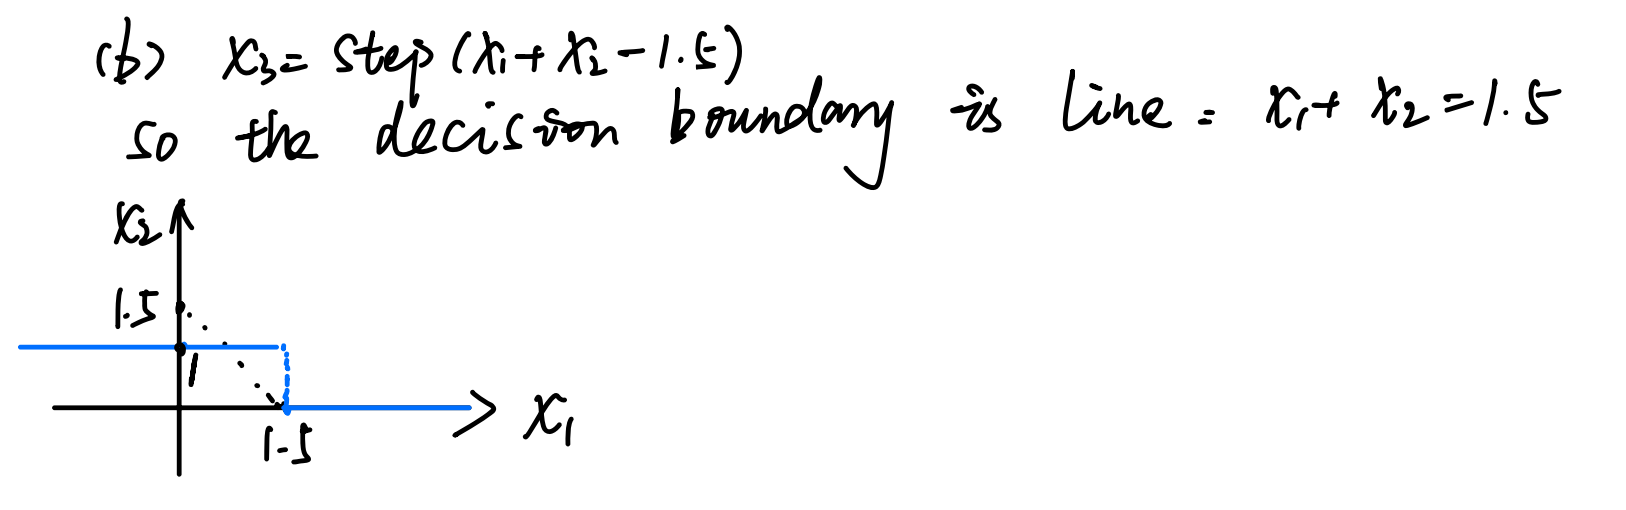 (b) x₃ = step (x₁ + x₂ - 1.5)
so the decision boundary is line = x₁ + x₂ = 1.5
x₂
1.5
1
1.5
x₁